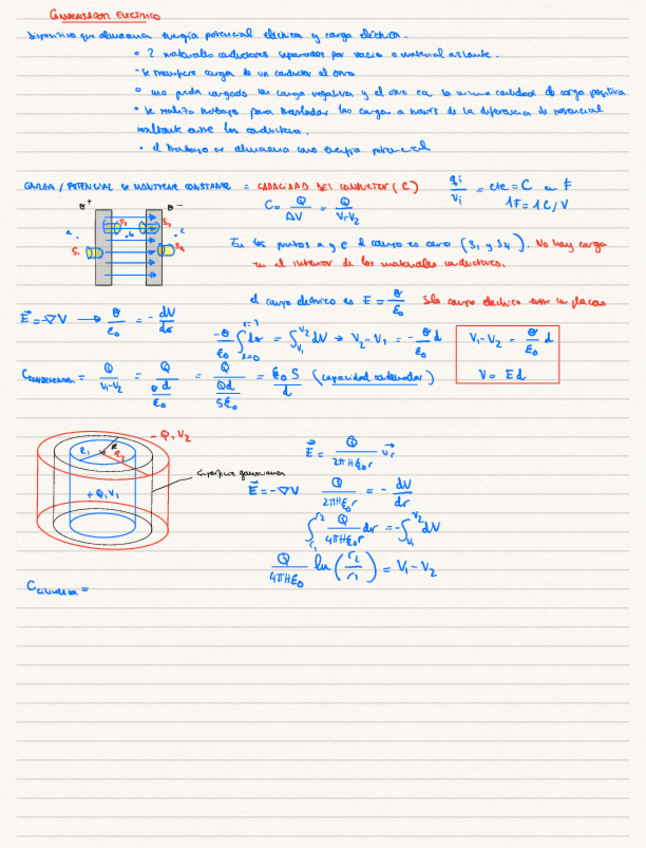 CONDENSADOR ELÉCTRICO
Dispositivo que almacena energía potencial eléctrica y carga eléctrica.
• 2 materiales conductores separados por vacío o material aislante.
• Se transfiere carga de un conductor al otro
• uno queda cargado con carga negativa y el otro con la misma cantidad de carga positiva
• Se realiza trabajo para trasladar las cargas a través de la diferencia de potencial
resultante entre los conductores.
• el trabajo se almacena como energía potencial
CARGA / POTENCIAL SE MANTIENE CONSTANTE = CAPACIDAD DEL CONDUCTOR (C) qi/Vi = cte = C en F
C = Q/ΔV = Q/V1-V2 1F = 1C/V
σ+ σ-
a. S1 S2 .b S3 .c S4
En los puntos a y c el campo es cero (S1 y S4). No hay carga
en el interior de los materiales conductores.
el campo eléctrico es E = σ/ε0 Solo campo eléctrico entre las placas
E⃗ = -∇V → σ/ε0 = - dV/dr
-σ/ε0 ∫ dr = ∫ V1 V2 dV → V2 - V1 = - σ/ε0 d
V1 - V2 = σ/ε0 d
V = Ed
C condensador = Q/V1-V2 = Q/(σd/ε0) = Q/(Qd/Sε0) = ε0 S/d (capacidad condensador)
- Q, V2
R1 R R2
Superficie gaussiana
+ Q, V1
E⃗ = Q/2πHε0r u⃗r
E⃗ = -∇V Q/2πHε0r = - dV/dr
∫ r1 r2 Q/4πHε0r dr = -∫ V1 V2 dV
Q/4πHε0 ln(r2/r1) = V1 - V2
C cilíndrico =